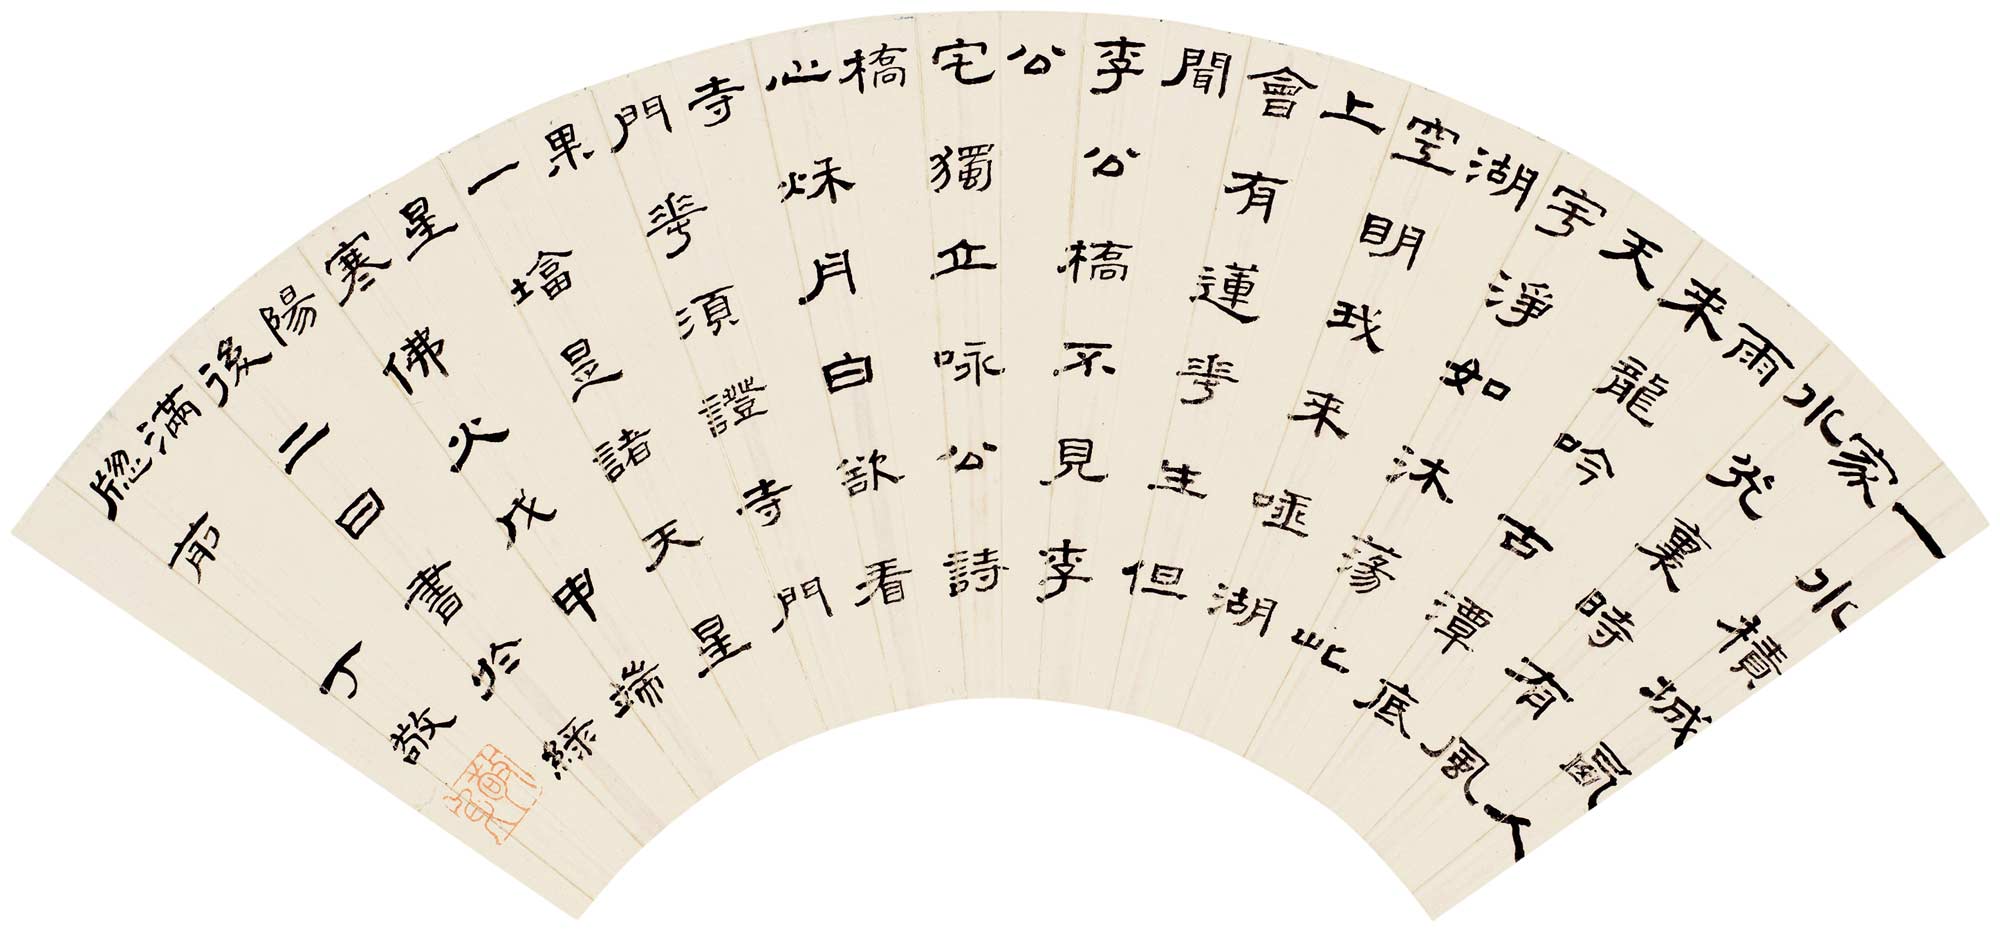 一水積城卥人
家
水光裏時有風
雨
来龍吟古潭底
天
宇淨如沐蕩此
湖
空明我来亟湖
上
會有蓮華生但
聞
李公橋不見李
公
宅獨立咏公詩
橋
心秌月白欲看
寺
門華須證寺門
果
一墖是諸天星
星
寒佛火戊申端
陽
後二日書於綠
滿
牕前丁敬